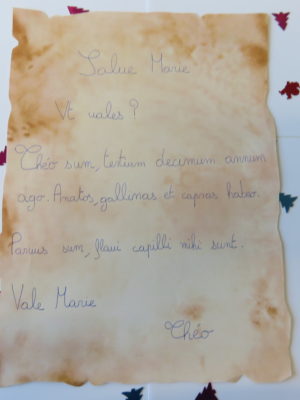 Salue Marie
Vt uales ?
Théo sum, tertium decimum annum
ago. Anatos, gallinas et capras habeo.
Paruus sum, flaui capilli mihi sunt.
Vale Marie
Théo